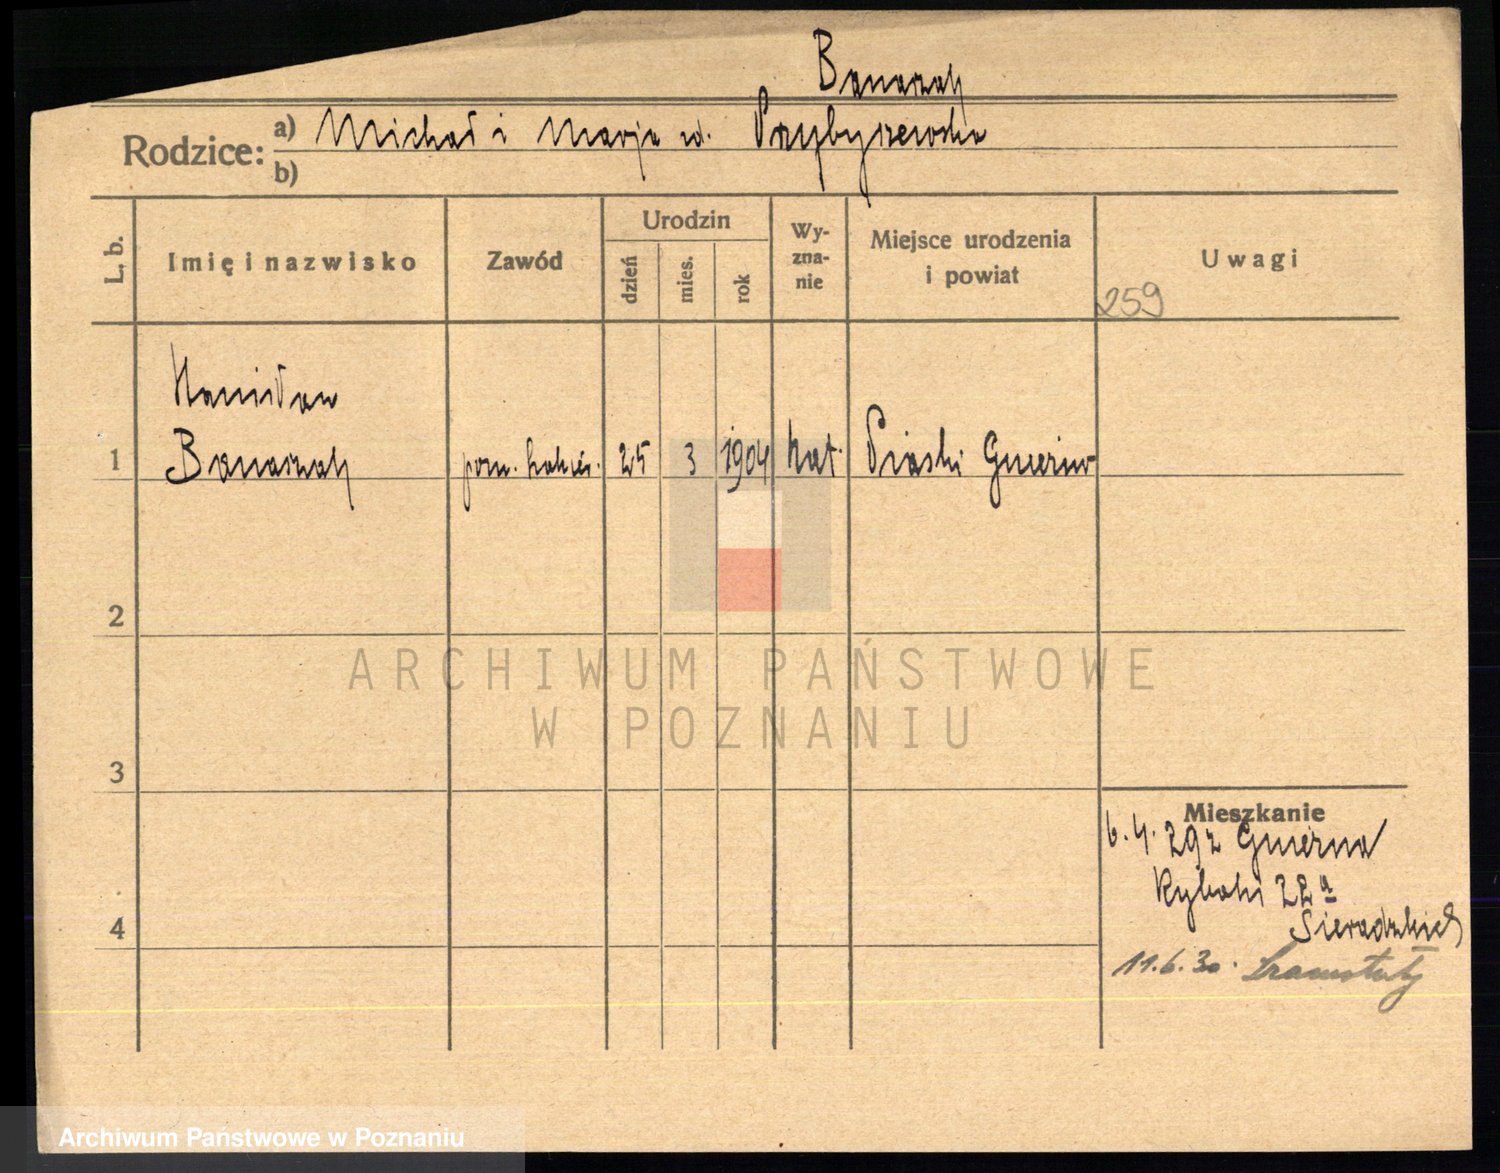 Banaszak
Rodzice: a) Michał i Marja zd. Przybyszewska
b)
L. b.
Imię i nazwisko
Zawód
Urodzin
dzień
mies.
rok
Wy-
zna-
nie
Miejsce urodzenia
i powiat
Uwagi
259
Stanisław
1 Banaszak pom. 25 3 1904 kat. Piaski Gniezno
2
ARCHIWUM PAŃSTWOWE
W POZNANIU
3
Mieszkanie
6.4.29 z Gniezna
Rybaki 22a
11.6.30.
4
Archiwum Państwowe w Poznaniu